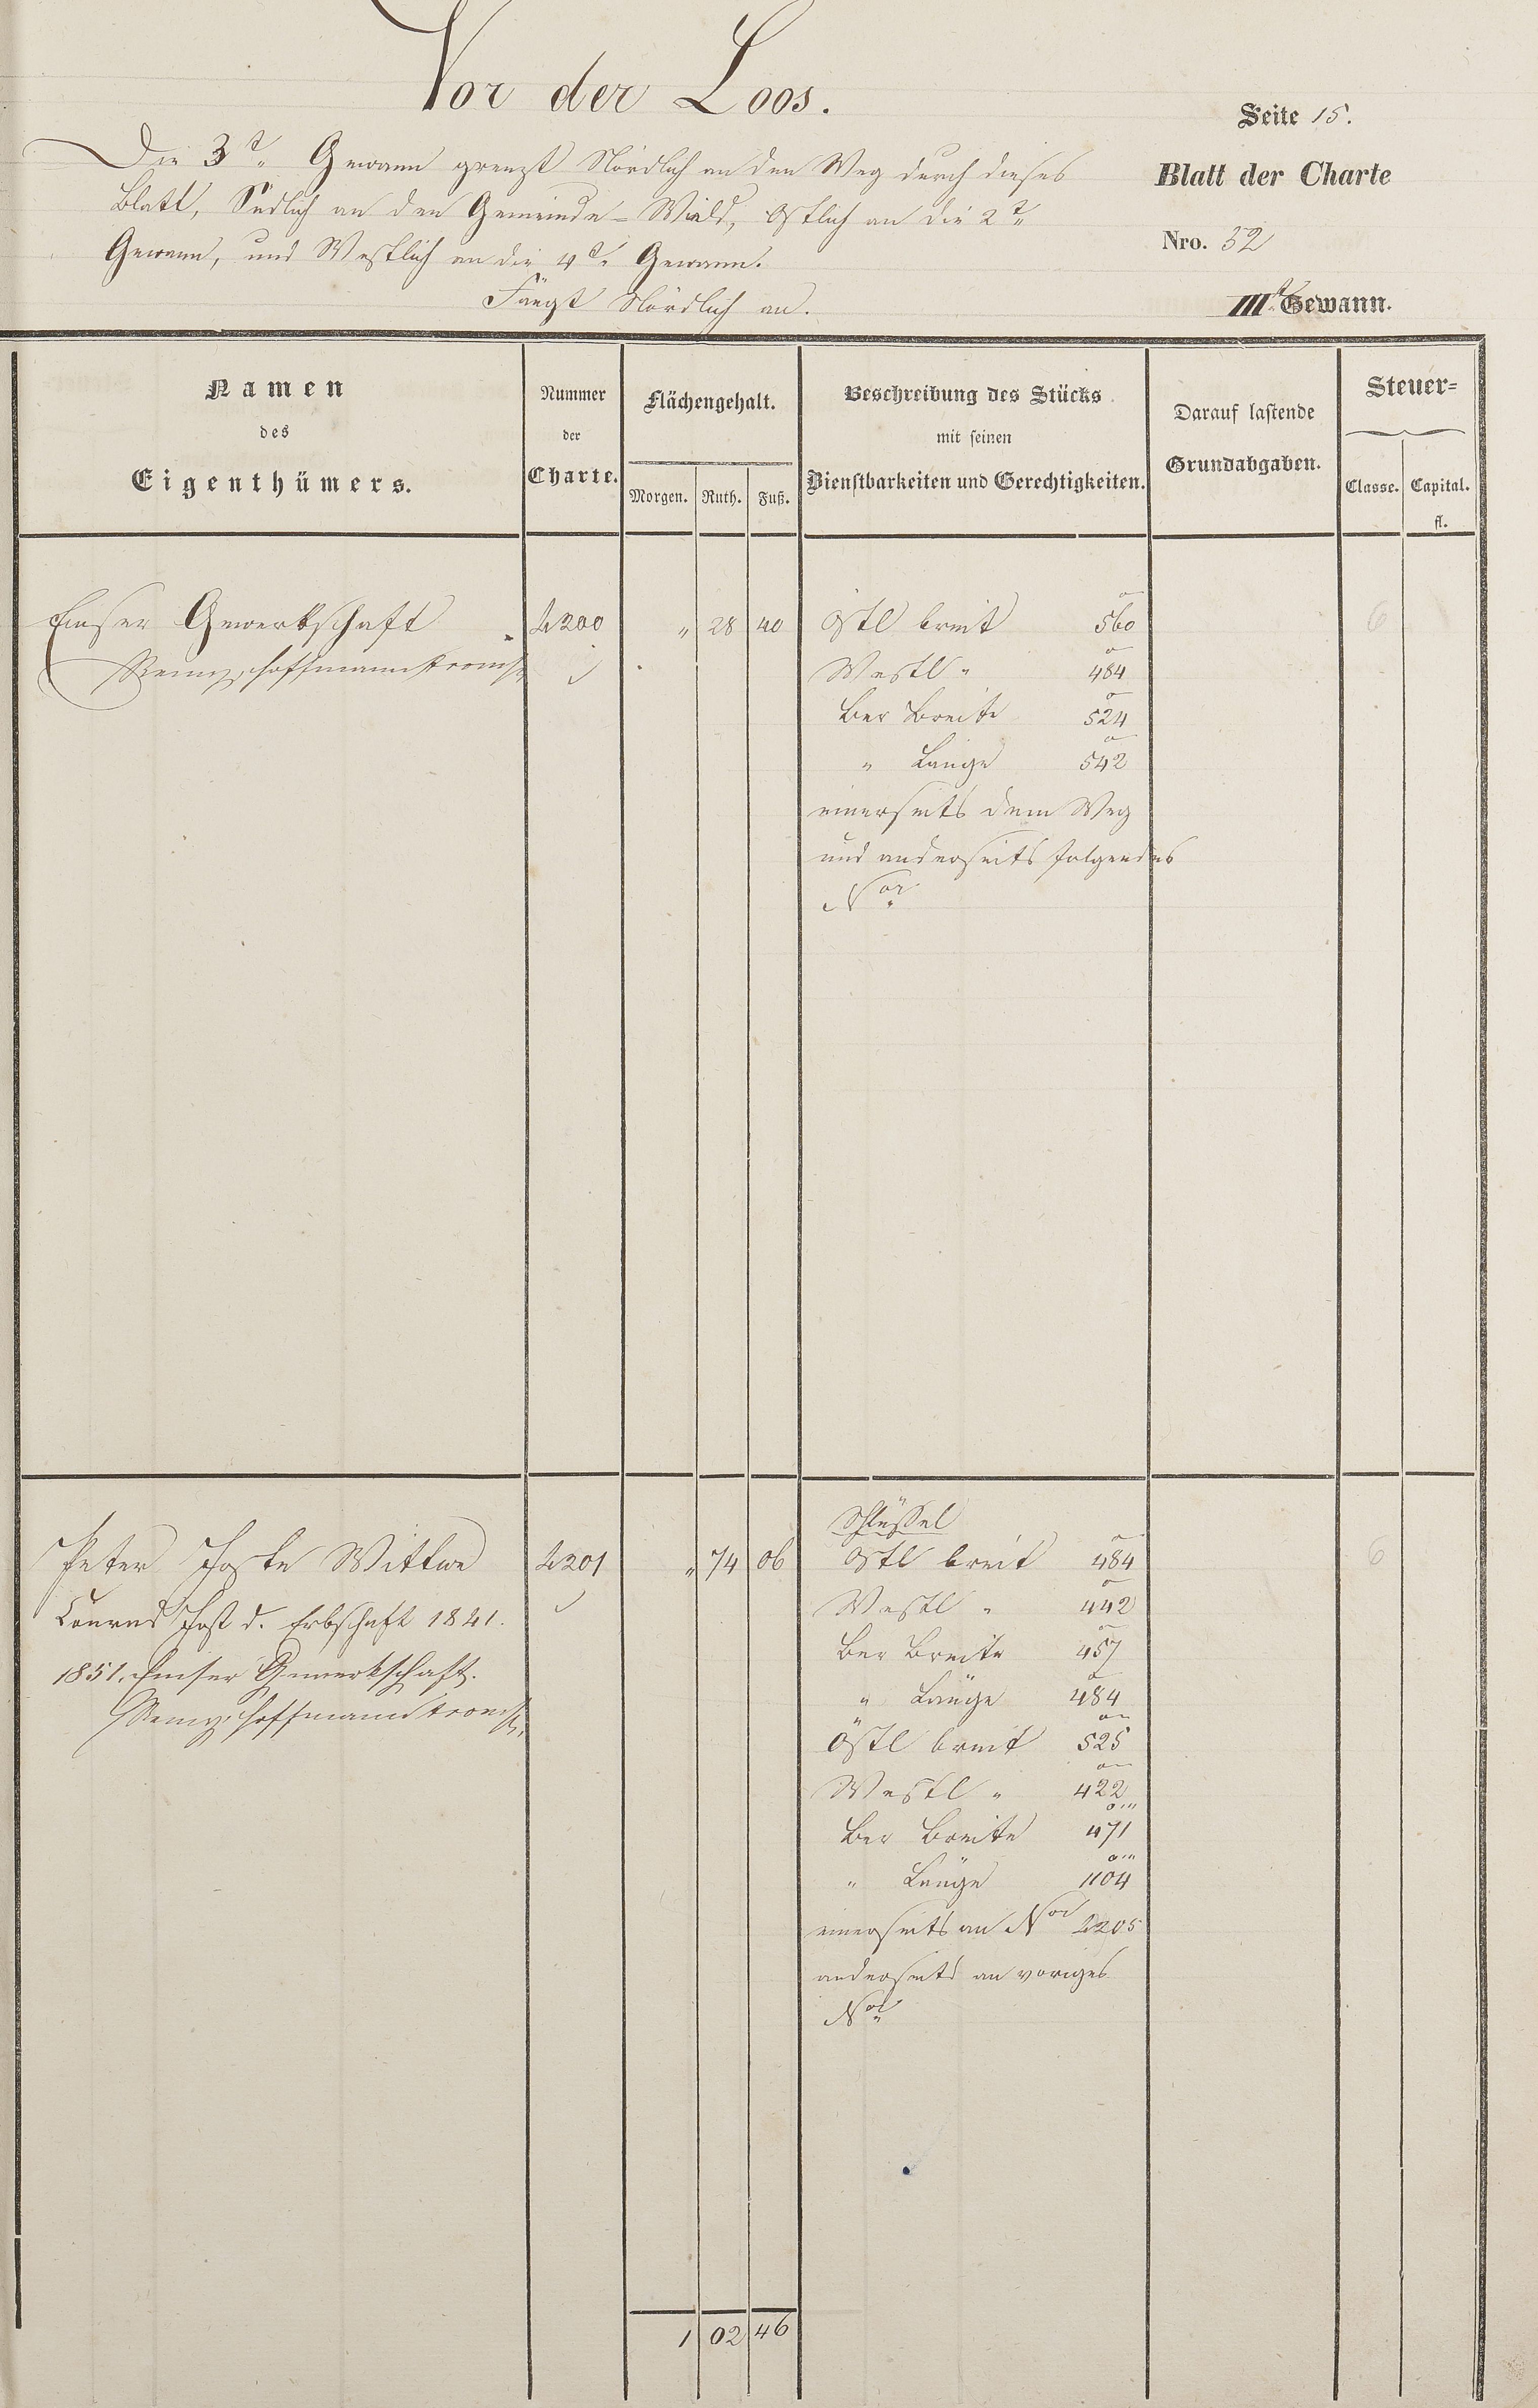 Vor der Loos.
Seite 15.
Die 3te Gewann grenzt Nördlich an den Weg durch dieses
Blatt der Charte
Blatt, Südlich an den Gemeinde-Wald, Östlich an die 2te
Nro. 32
Gewann, und Westlich an die 4te Gewann.
Fängt Nördlich an.
IIIt Gewann.
Namen des Eigenthümers.
Nummer der Charte.
Flächengehalt.
Morgen. Ruth. Fuß.
Beschreibung des Stücks mit seinen Dienstbarkeiten und Gerechtigkeiten.
Darauf lastende Grundabgaben.
Steuer=
Classe. Capital. fl.
Emser Gewerkschaft 4200 " 28 40 Östl breit 560 6
Hoffmann Westl " 484
Ber Breite 524
" Länge 542
einerseits dem Weg
und anderseits folgendes
Nor
Schlüssel
Peter Joste Wittwe 4201 " 74 06 Östl breit 484 6
Conrad Jost d. Erbschaft 1841. Westl " 442
Ber Breite 457
1851. Emser Gewerkschaft.
" Länge 484
Hoffmann
Östl breit 525
Westl " 422
Ber Breite 471
" Länge 1104
einerseits an Nor 2205
anderseits an voriges
Nor
1 02 46